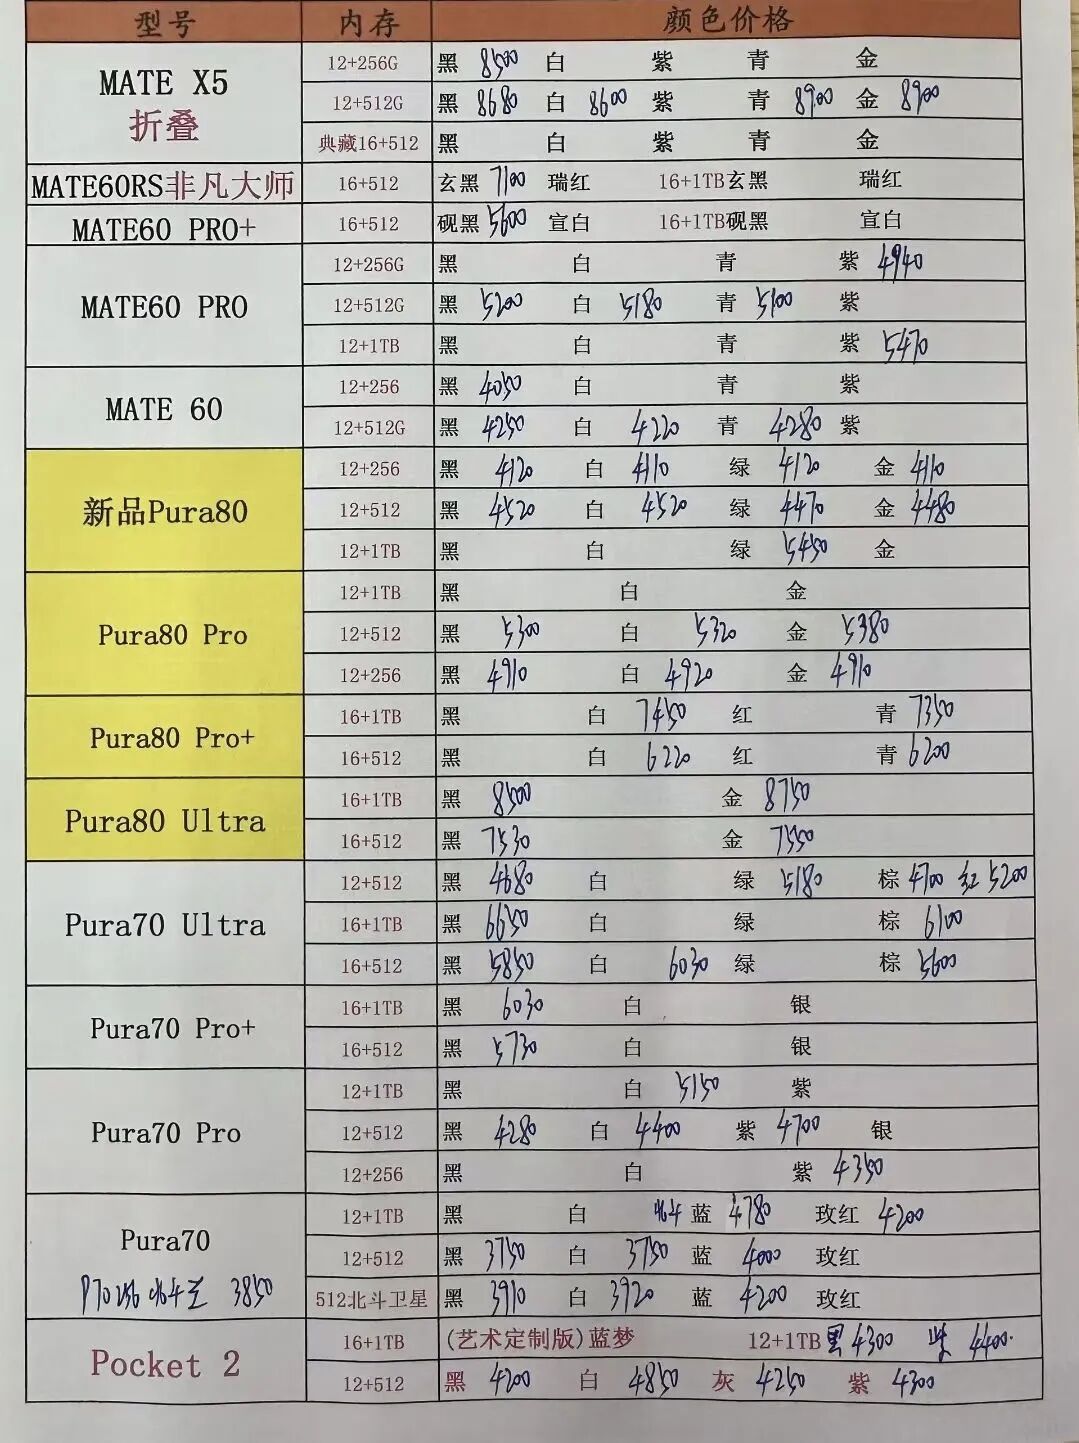 型号 内存 颜色价格
MATE X5 折叠
12+256G 黑 8500 白 紫 青 金
12+512G 黑 8680 白 8600 紫 青 8900 金 8900
典藏16+512 黑 白 紫 青 金
MATE60RS非凡大师 16+512 玄黑 7100 瑞红 16+1TB玄黑 瑞红
MATE60 PRO+ 16+512 砚黑 5600 宣白 16+1TB砚黑 宣白
MATE60 PRO
12+256G 黑 白 青 紫 4940
12+512G 黑 5200 白 5180 青 5100 紫
12+1TB 黑 白 青 紫 5470
MATE 60
12+256 黑 4050 白 青 紫
12+512G 黑 4250 白 4220 青 4280 紫
新品Pura80
12+256 黑 4120 白 4110 绿 4120 金 4110
12+512 黑 4520 白 4520 绿 4470 金 4480
12+1TB 黑 白 绿 5450 金
Pura80 Pro
12+1TB 黑 白 金
12+512 黑 5300 白 5320 金 5380
12+256 黑 4910 白 4920 金 4910
Pura80 Pro+
16+1TB 黑 白 7450 红 青 7350
16+512 黑 白 6220 红 青 6200
Pura80 Ultra
16+1TB 黑 8500 金 8750
16+512 黑 7530 金 7550
Pura70 Ultra
12+512 黑 4680 白 绿 5180 棕 4700 红 5200
16+1TB 黑 6650 白 绿 棕 6100
16+512 黑 5850 白 6030 绿 棕 5600
Pura70 Pro+
16+1TB 黑 6030 白 银
16+512 黑 5730 白 银
Pura70 Pro
12+1TB 黑 白 5150 紫
12+512 黑 4280 白 4400 紫 4700 银
12+256 黑 白 紫 4350
Pura70
12+1TB 黑 白 北斗 蓝 4780 玫红 4200
12+512 黑 3750 白 3750 蓝 4000 玫红
P70 256 北斗 3850
512北斗卫星 黑 3910 白 3920 蓝 4200 玫红
Pocket 2
16+1TB (艺术定制版)蓝梦 12+1TB 黑 4300 紫 4400
12+512 黑 4200 白 4850 灰 4250 紫 4300